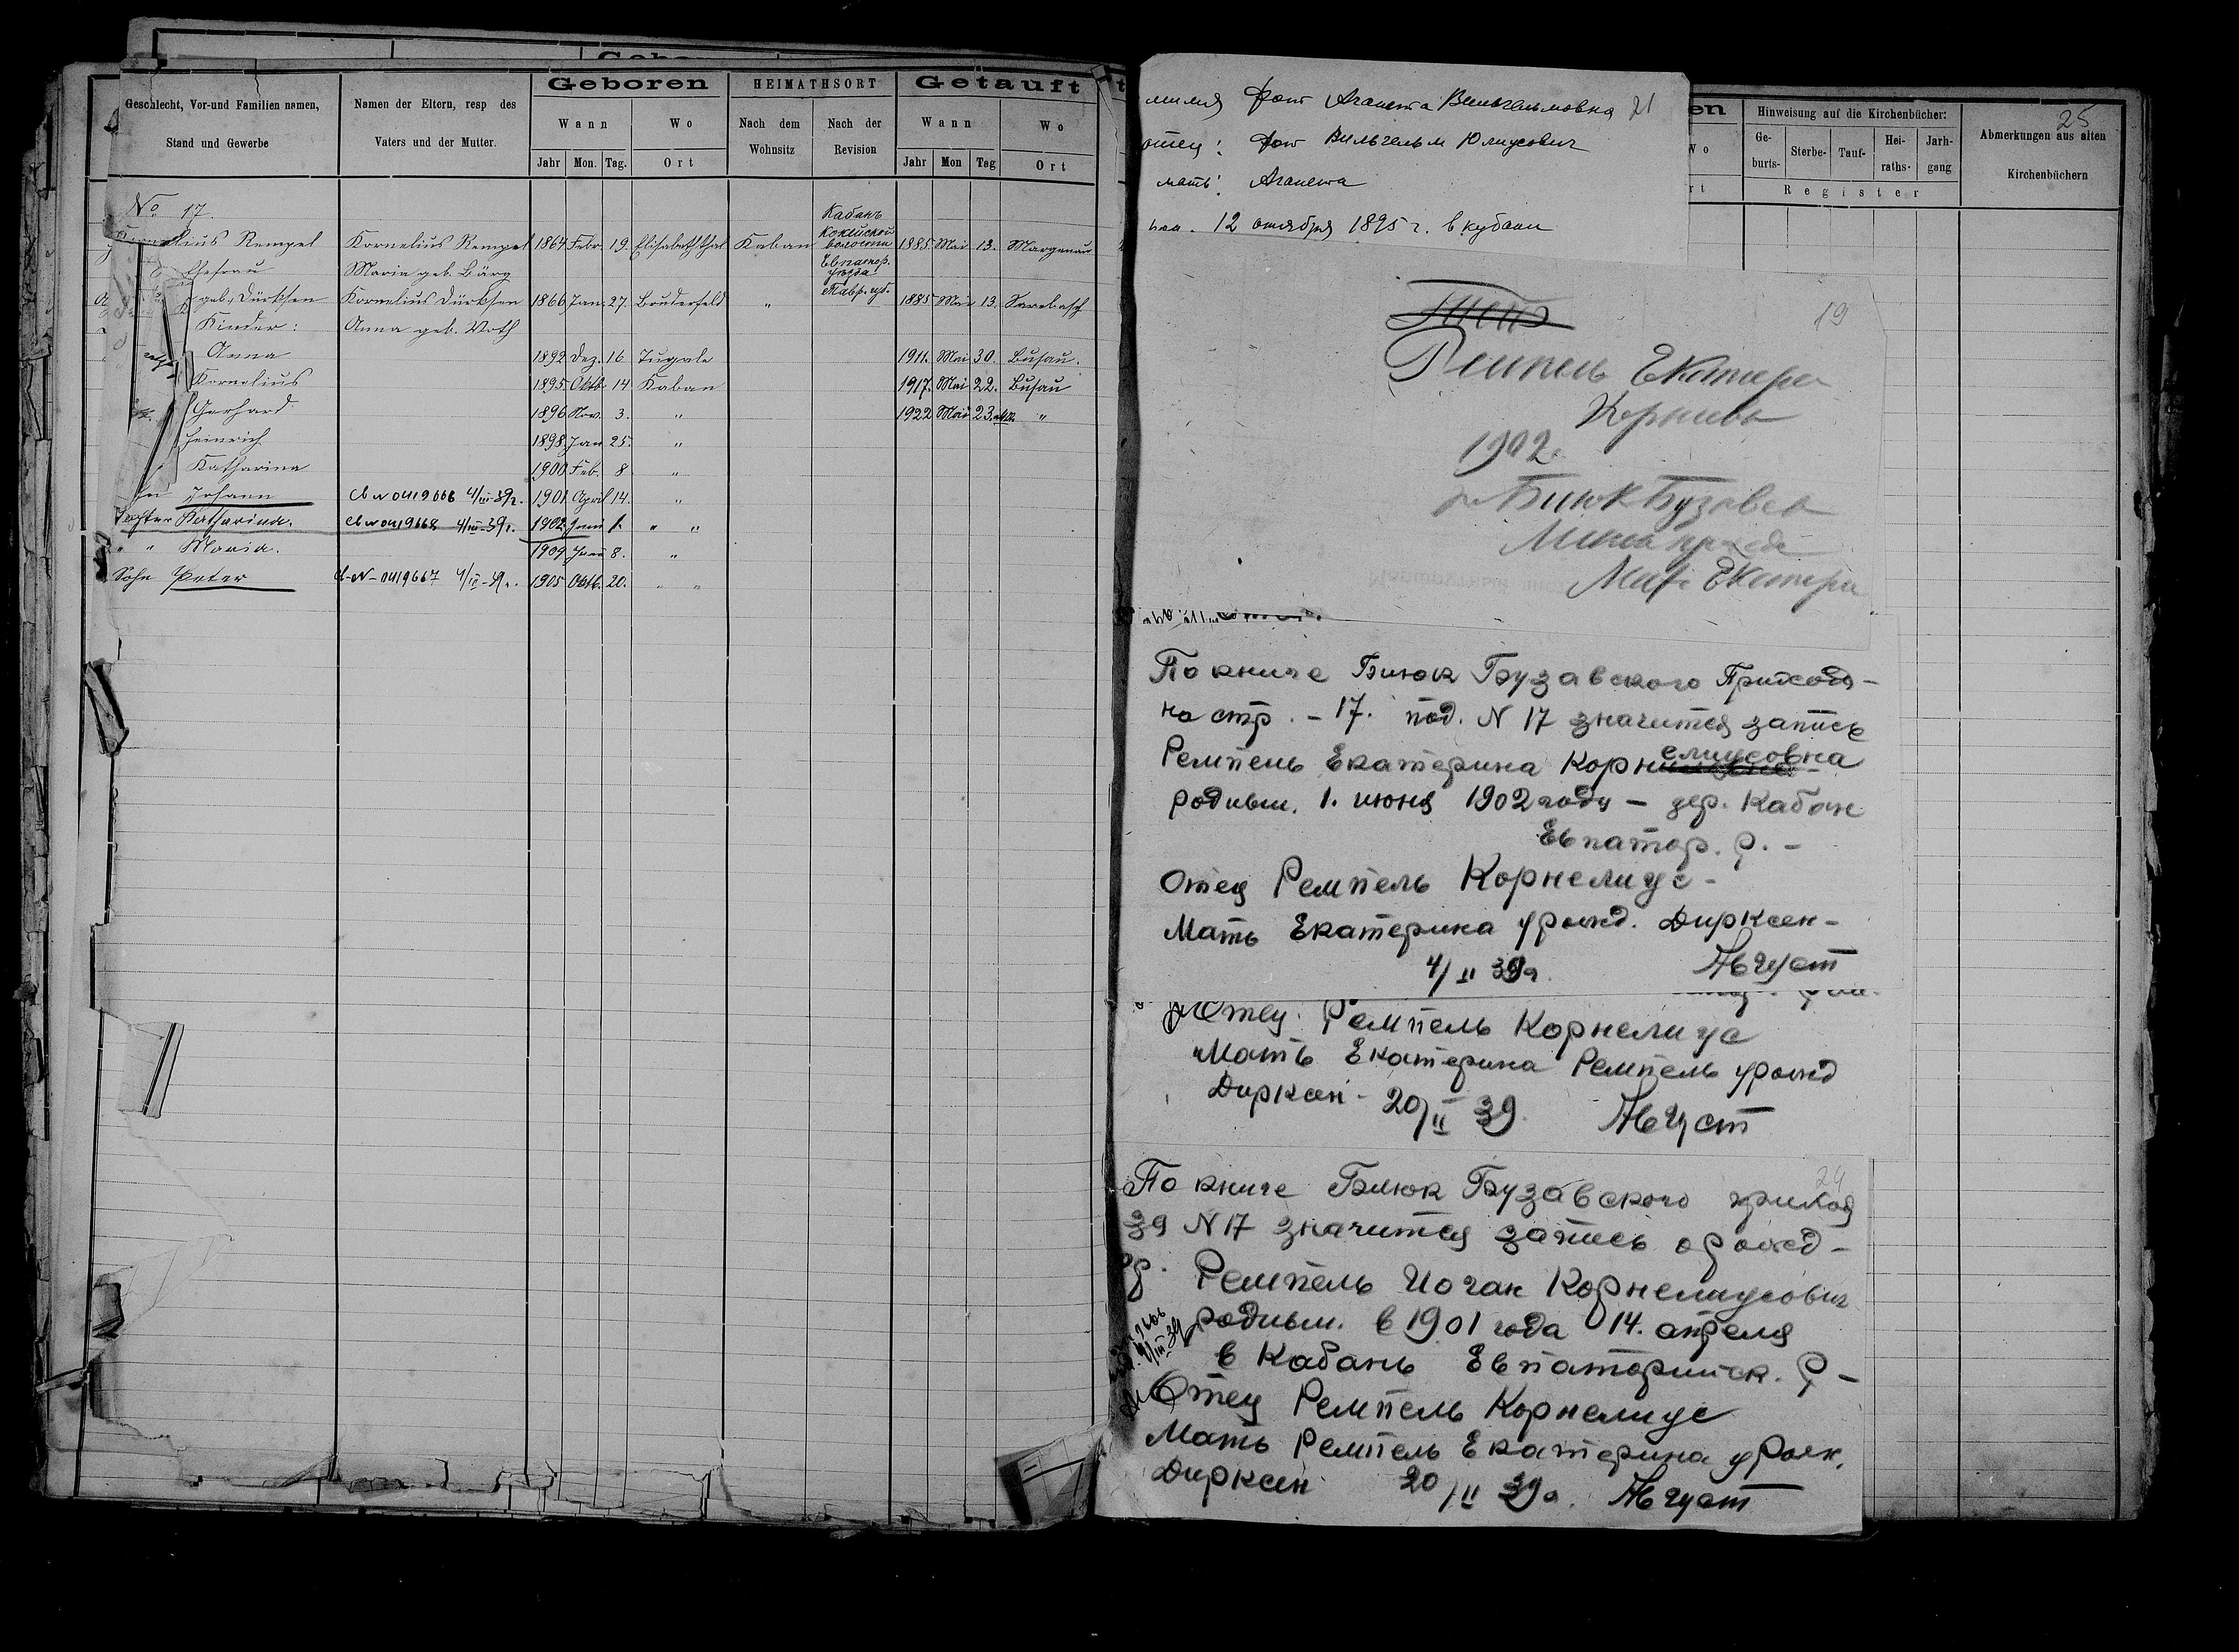 Geboren
HEIMATHSORT
Getauft
Geschlecht, Vor-und Familien namen,
Stand und Gewerbe
Namen der Eltern, resp des
Vaters und der Mutter.
Wann
Wo
Nach dem
Wohnsitz
Nach der
Revision
Wann
Wo
Jahr Mon. Tag. Ort
Jahr Mon Tag Ort
No 17.
Кабанъ
Кокейской
волости
Евпатор.
уѣзда
Тавр. губ.
Kornelius Rempel Kornelius Rempel 1864 Febr. 19. Elisabeththal Kaban 1885 Mai 13. Margenau
Ehefrau Maria geb. Bärg
geb. Dürksen Kornelius Dürksen 1866 Jan. 27. Bruderfeld " 1885 Mai 13. Sarabasch
Kinder: Anna geb. Voth
Anna 1892 Dez. 16 Tugale 1911. Mai 30. Busau.
Kornelius 1895 Oktb. 14 Kaban 1917. Mai 22. Busau
Gerhard 1896 Nov. 3. " 1922 Mai 23. "
Heinrich 1898. Jan 25. "
Katharina 1900 Feb. 8 "
Johann 0419666 4/III-39г. 1901. April 14. "
Tochter Katharina. 0419668 4/III-39г. 1902 Juni 1. " "
" " Maria. 1909 Juni 8. "
Sohn Peter 0419667 1905 Oktb. 20. " "
en
Hinweisung auf die Kirchenbücher:
25
Abmerkungen aus alten
Kirchenbüchern
Ge-
burts-
Sterbe-
Tauf-
Hei-
raths-
Jarh-
gang
Register
милия Фот Аганета Вильгельмовна 21
отец: Фот Вильгельм Юлиусович
мать: Аганета
12 октября 1895 г. в кубани
19
Ремпель Екатери
Корнив
1902.
Биюк Бузавск
Мать Екатери
По книге Биюк Бузавского Прихода-
на стр. - 17. под. N 17 значится запись
Ремпель Екатерина Корнелиусовна
родивш. 1. июня 1902 году - дер. Кабан
Евпатор. р. -
Отец Ремпель Корнелиус -
Мать Екатерина урожд. Дирксен -
4/II 39г. Август
Отец Ремпель Корнелиус
Мать Екатерина Ремпель урожд
Дирксен - 20/II 39. Август
24
По книге Биюк Бузавского приход
39 N 17 значится запись о рожд-
Ремпель Иоган Корнелиусович
родивш. в 1901 года 14. апреля
в Кабань Евпаторийск. р -
Отец Ремпель Корнелиус
Мать Ремпель Екатерина урож.
Дирксен 20/II 39г. Август